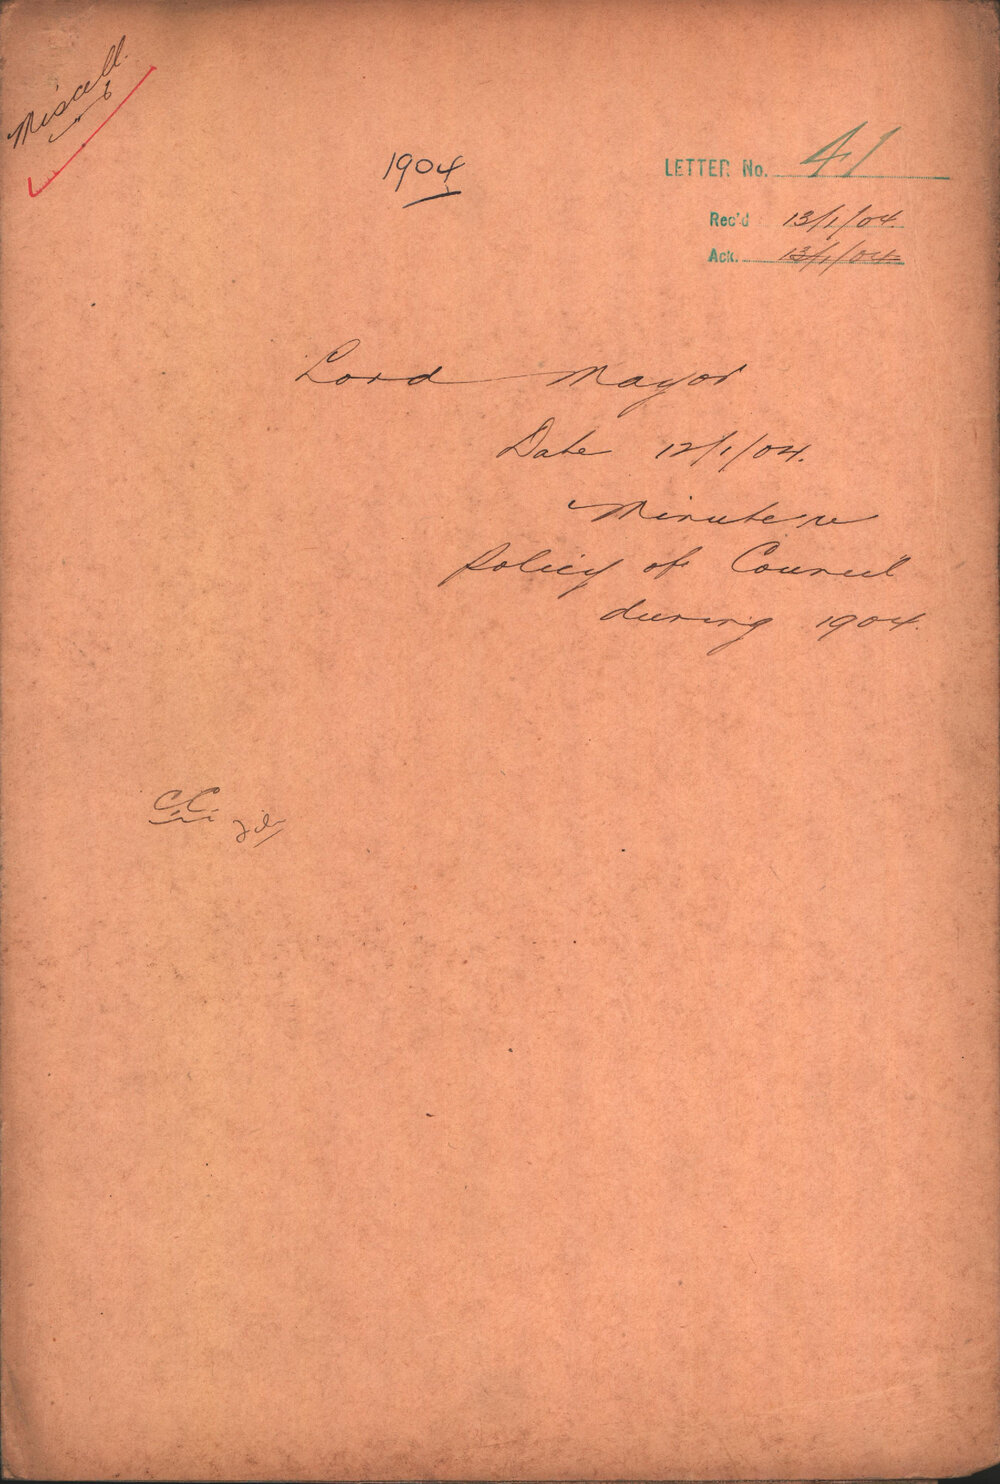 Miscell.
1904
LETTER No. 41
Rec'd 13/1/04.
Ack. 13/1/04
Lord Mayor
Date 12/1/04.
Minute re
policy of Council
during 1904.
CC